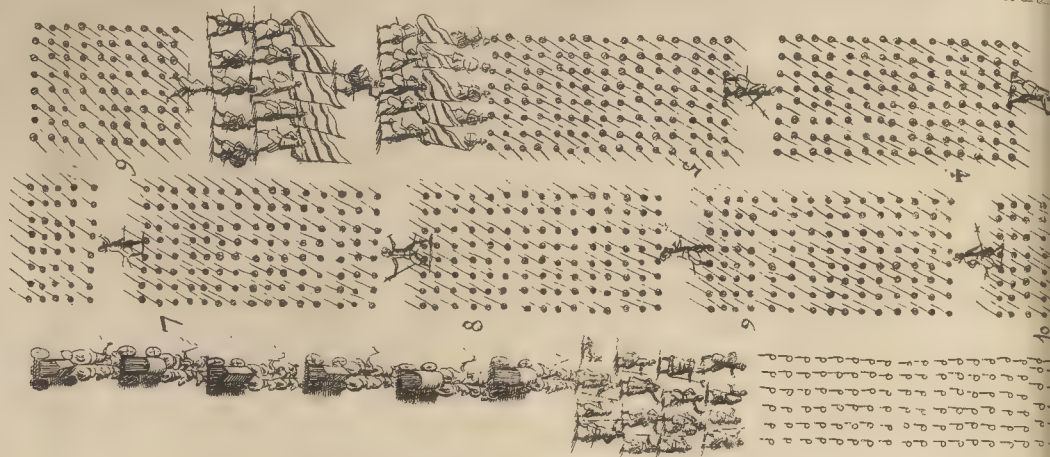 6
5
4
7
8
9
10